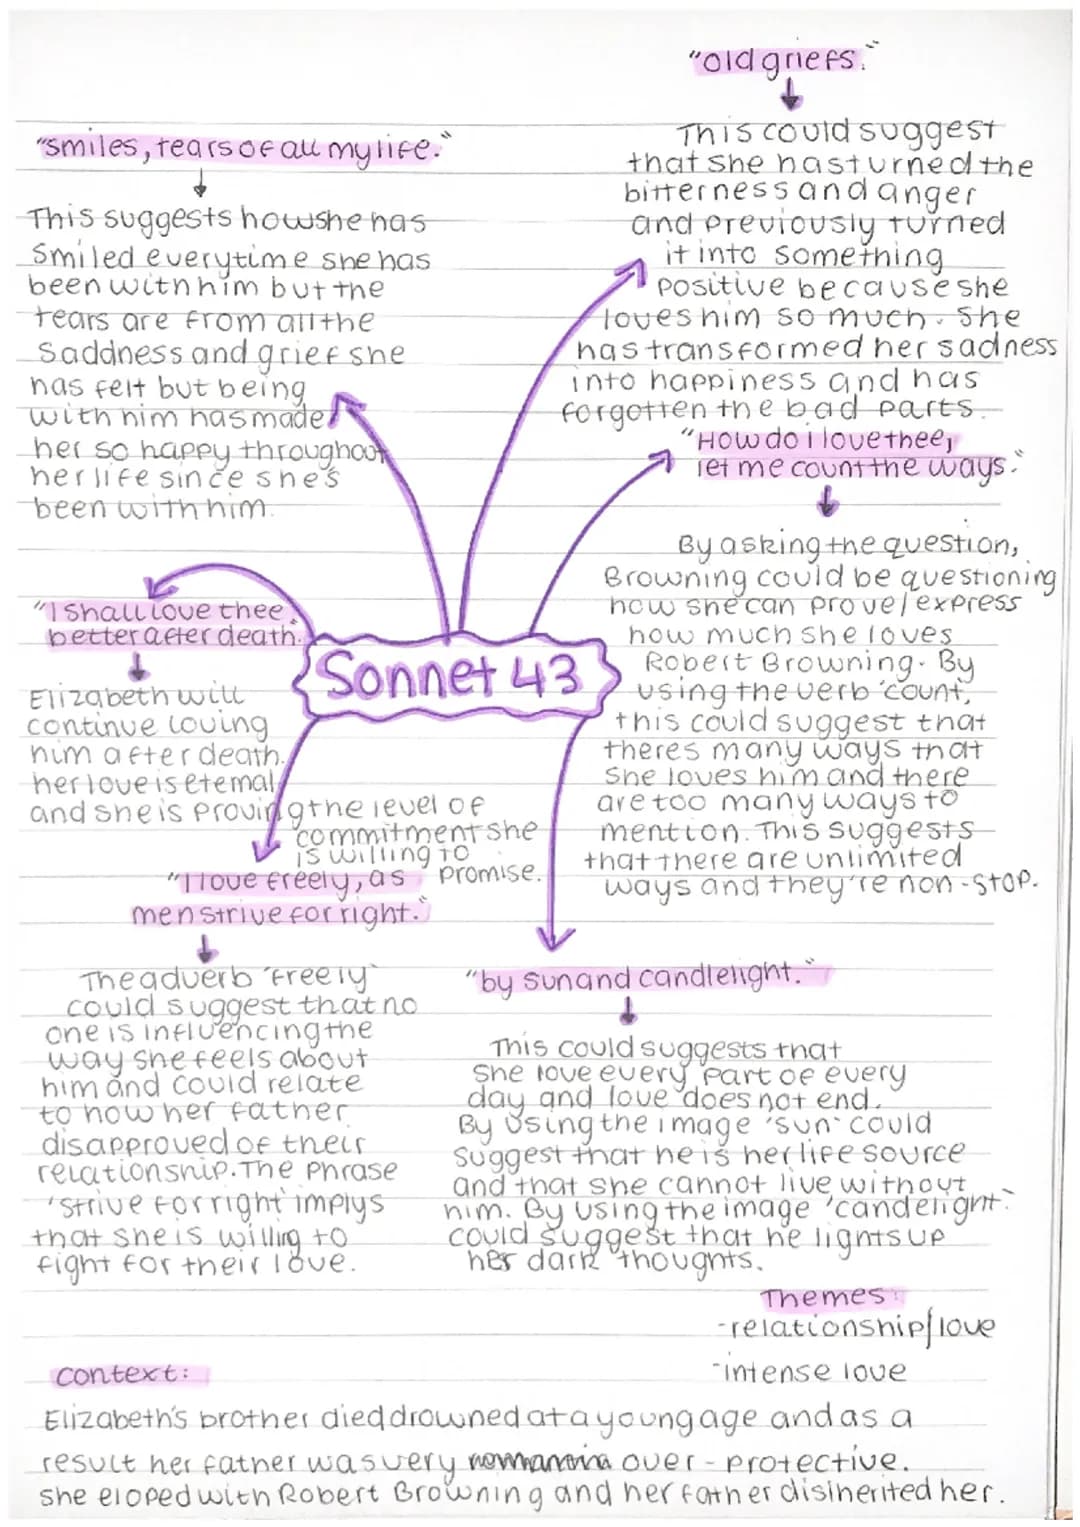 "old griefs."
This could suggest
that she has turned the
bitterness and anger
and previously turned
it into something
positive because she
loves him so much. She
has transformed her sadness
into happiness and has
forgotten the bad parts.
"smiles, tears of all my life."
This suggests how she has
smiled everytime she has
been with him but the
tears are from all the
Saddness and grief she
has felt but being
with him has made
her so happy throughout
her life since she's
been with him.
"How do i love thee,
let me count the ways."
By asking the question,
Browning could be questioning
how she can prove/express
how much she loves
Robert Browning. By
using the verb 'count,
this could suggest that
theres many ways that
She loves him and there
are too many ways to
mention. This suggests
that there are unlimited
ways and they're non-stop.
"I shall love thee
better after death.
Elizabeth will
continue loving
him after death.
her love is eternal
and she is proving the level of
commitment she
is willing to
promise.
Sonnet 43
"I love freely, as
men strive for right."
The adverb 'freely'
could suggest that no
one is influencing the
way she feels about
him and could relate
to how her father
disapproved of their
relationship. The phrase
'strive for right' implys
that she is willing to
fight for their love.
"by sun and candlelight."
This could suggests that
She love every part of every
day and love does not end.
By using the image 'sun' could
suggest that he is her life source
and that she cannot live without
him. By using the image 'candelight'
could suggest that he lights up
her dark thoughts.
Themes:
-relationship/love
-intense love
context:
Elizabeth's brother died drowned at a young age and as a
result her father was very over-protective.
she eloped with Robert Browning and her father disinherited her.